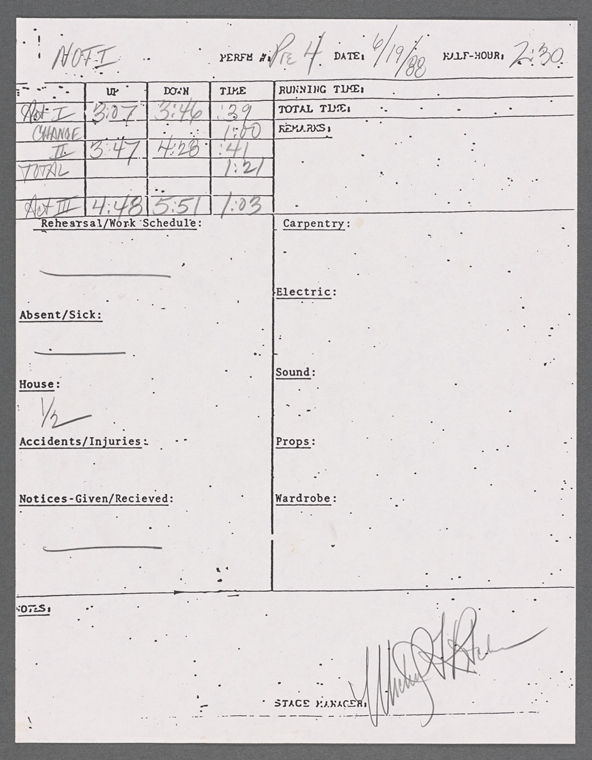 NOT I PERFM #: Pre 4 DATE: 6/19/88 HALF-HOUR: 2:30
UP DOWN TIME RUNNING TIME:
Act I 3:07 3:46 :39 TOTAL TIME:
CHANGE 1:00 REMARKS:
II 3:47 4:28 :41
TOTAL 1:21
Act III 4:48 5:51 1:03
Rehearsal/Work Schedule: Carpentry:
Electric:
Absent/Sick:
Sound:
House:
1/2
Accidents/Injuries: Props:
Notices-Given/Recieved: Wardrobe:
NOTES:
STAGE MANAGER: